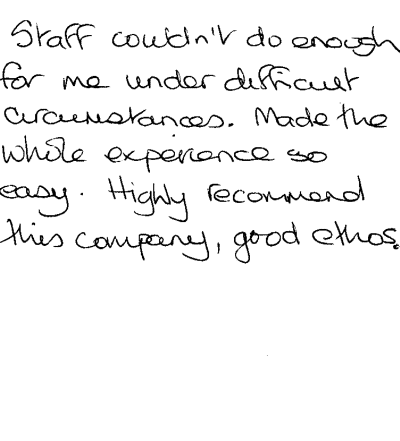 Staff couldn't do enough
for me under difficult
circumstances. Made the
whole experience so
easy. Highly recommend
this company, good ethos.